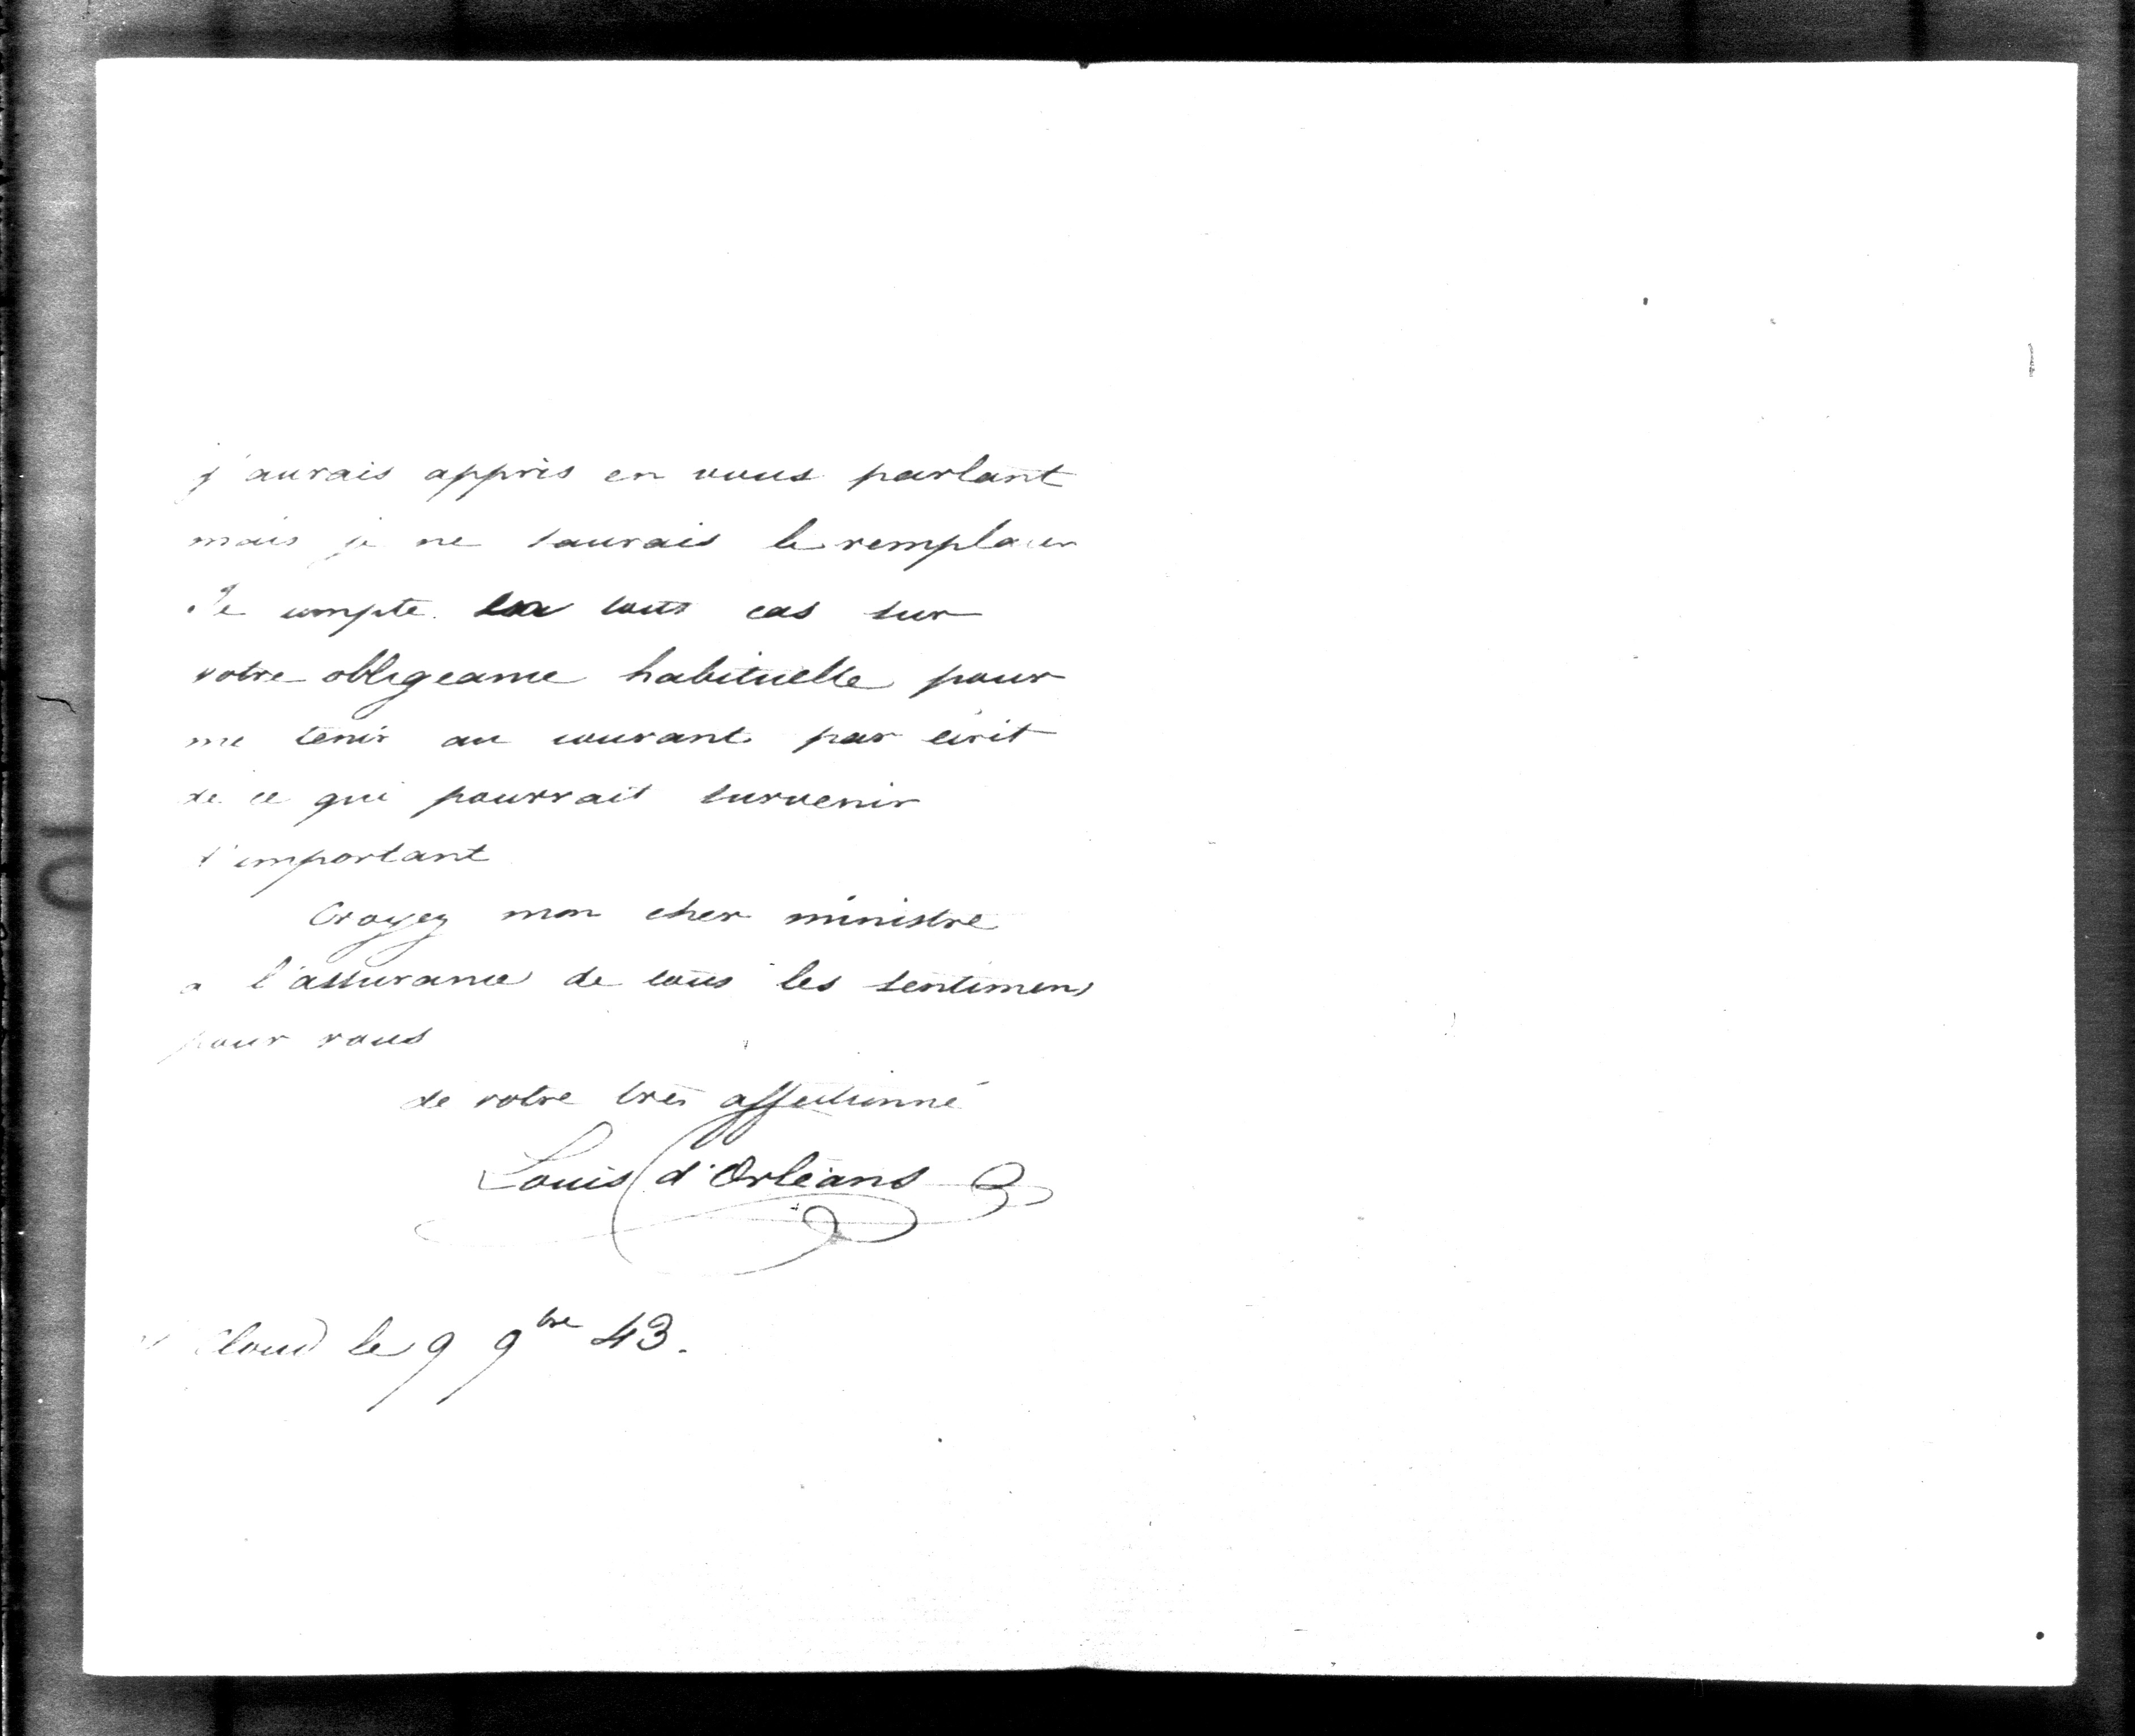 j'aurais appris en vous parlant
mais je ne saurais le remplacer
Je compte en tous cas sur
votre obligeance habituelle pour
me tenir au courant par écrit
de ce qui pourrait survenir
d'important
Croyez mon cher ministre
a l'assurance de tous les sentimens
pour vous
de votre très affectionné
Louis d'Orléans
St Cloud le 9 9bre 43.